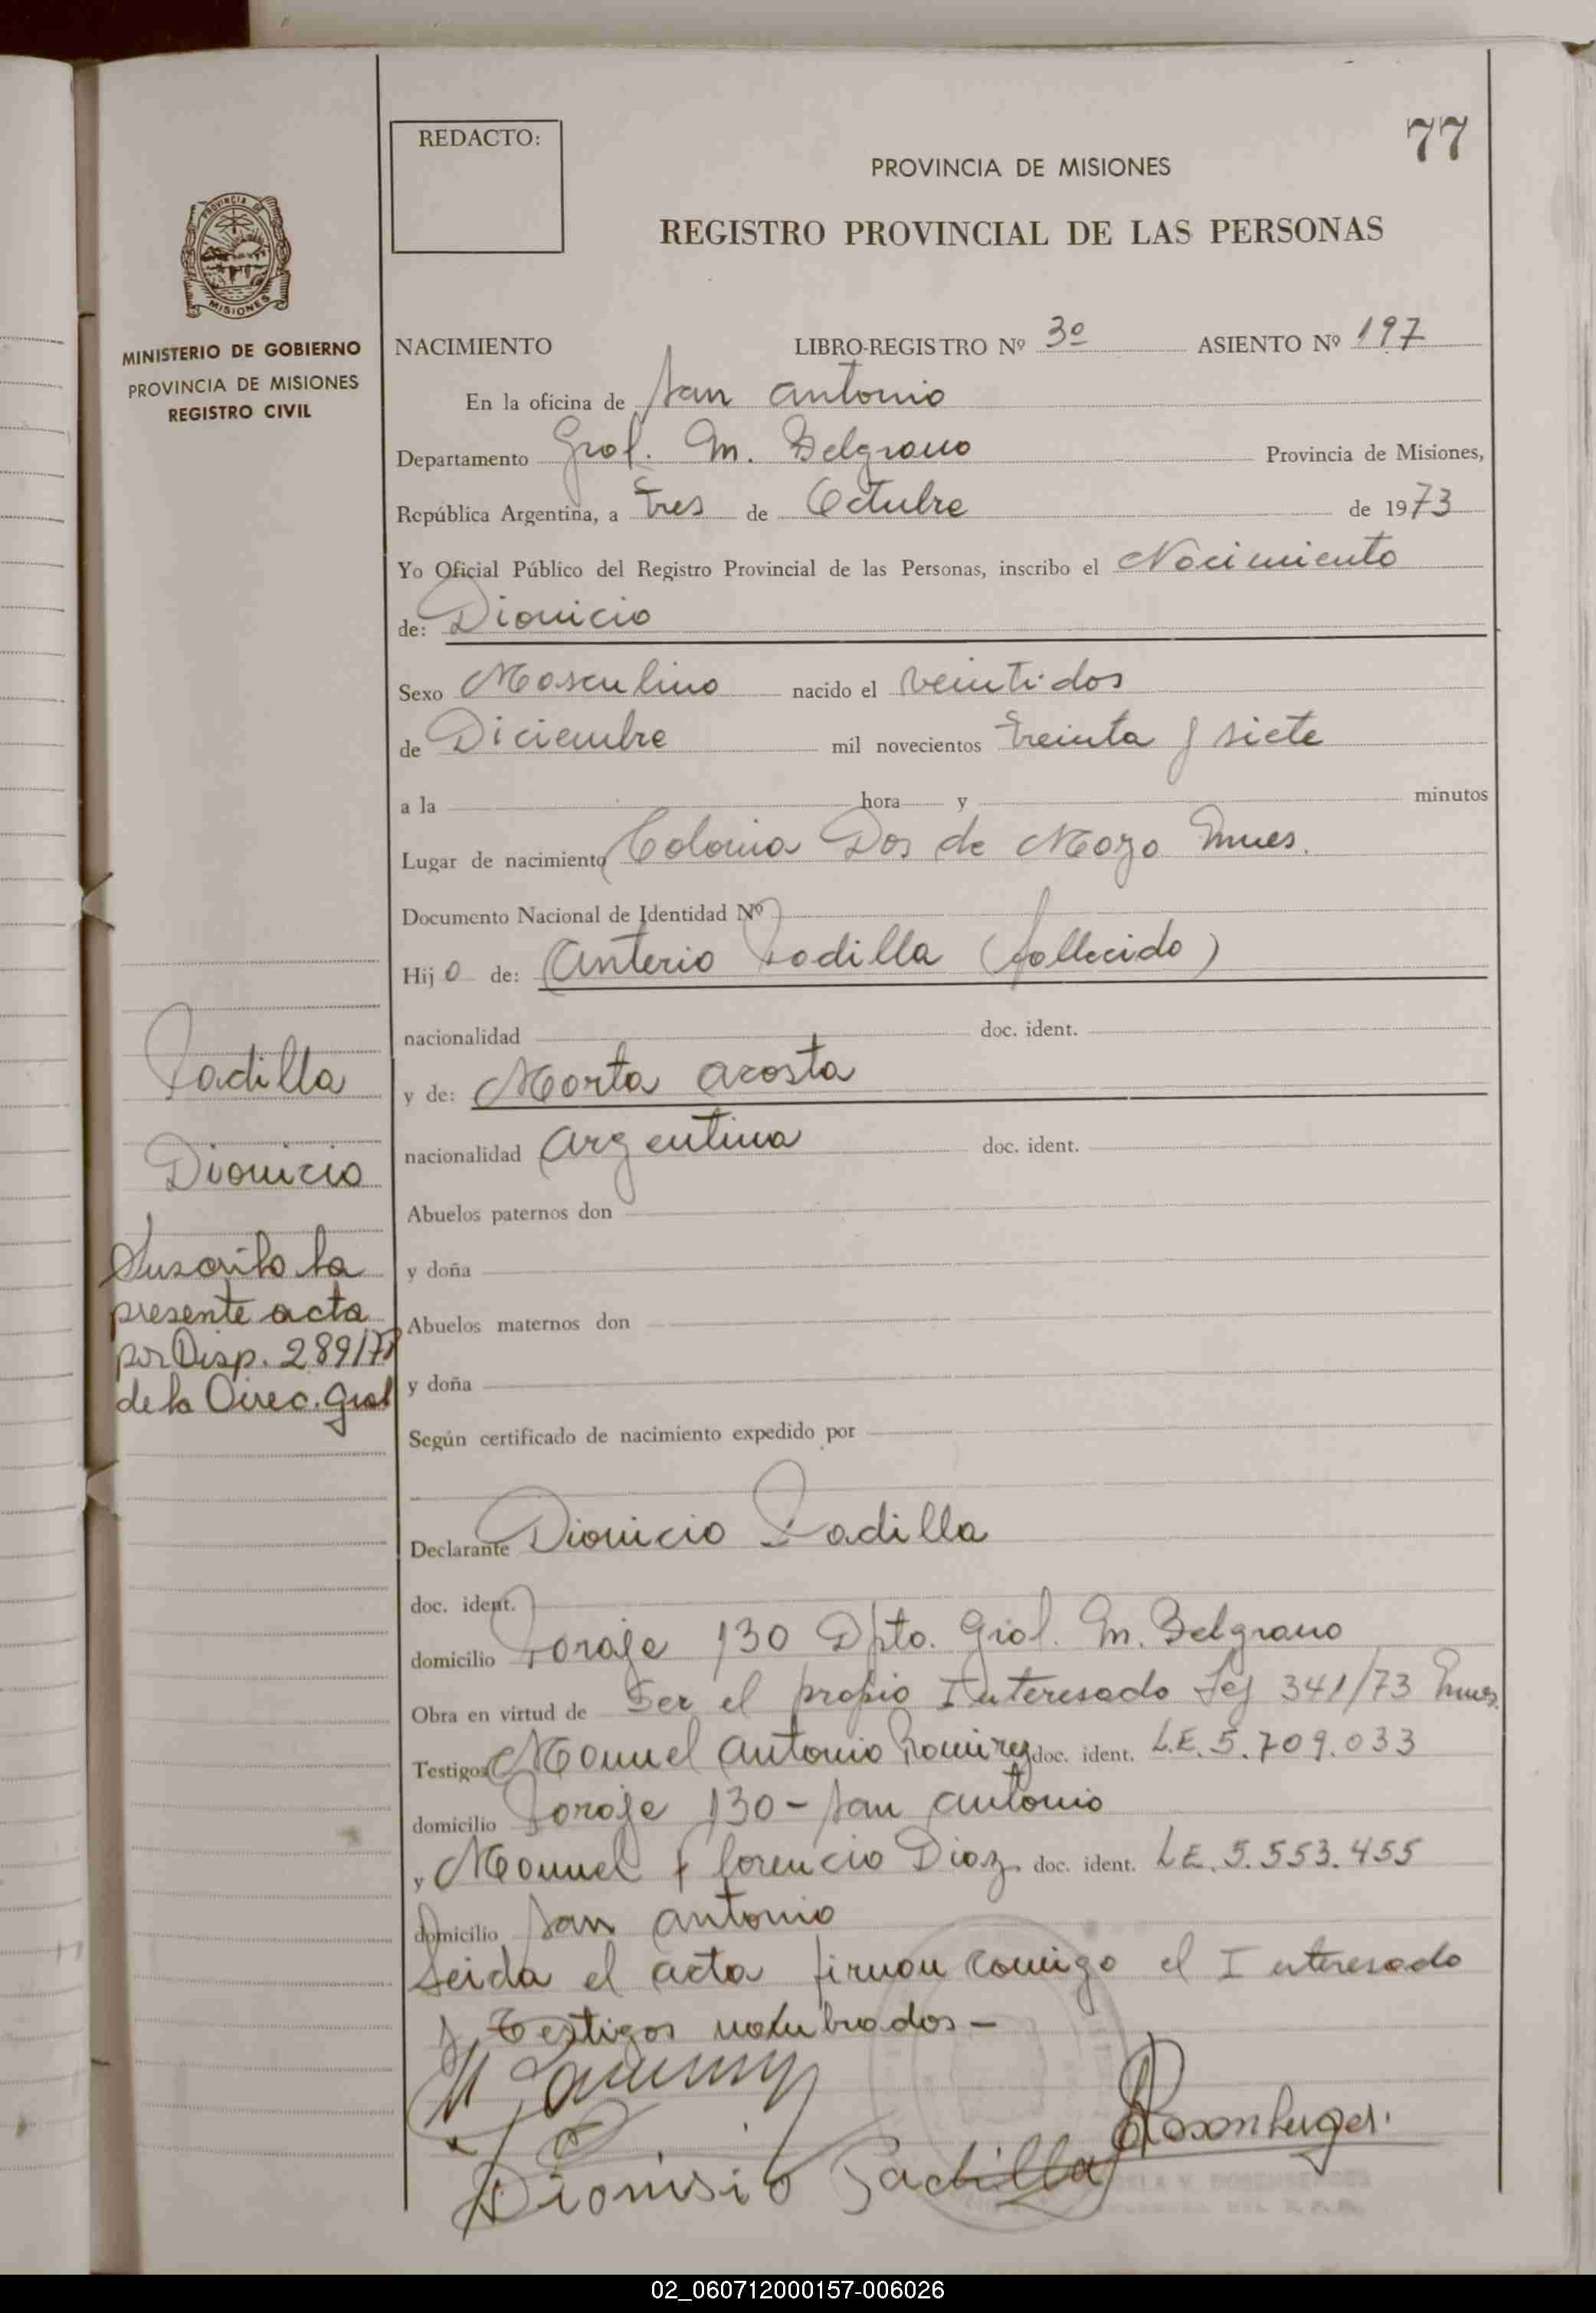 77
REDACTO:
PROVINCIA DE MISIONES
REGISTRO PROVINCIAL DE LAS PERSONAS
PROVINCIA DE
MISIONES
MINISTERIO DE GOBIERNO
PROVINCIA DE MISIONES
REGISTRO CIVIL
NACIMIENTO LIBRO-REGISTRO Nº 3º ASIENTO Nº 197
En la oficina de San Antonio
Departamento Gral. M. Belgrano Provincia de Misiones,
República Argentina, a tres de Octubre de 1973
Yo Oficial Público del Registro Provincial de las Personas, inscribo el Nacimiento
de: Dionicio
Sexo Masculino nacido el veintidos
de Diciembre mil novecientos treinta y siete
a la hora y minutos
Lugar de nacimiento Colonia Dos de Mayo Mnes.
Documento Nacional de Identidad Nº
Hijo de: Anterio Padilla (fallecido)
nacionalidad doc. ident.
y de: Marta Acosta
nacionalidad Argentina doc. ident.
Abuelos paternos don
y doña
Abuelos maternos don
y doña
Según certificado de nacimiento expedido por
Declarante Dionicio Padilla
doc. ident.
domicilio Paraje 130 Dpto. Gral. M. Belgrano
Obra en virtud de Ser el propio Interesado Lej 341/73 Mnes.
Testigos Manuel Antonio Ramirez doc. ident. L.E. 5.709.033
domicilio Paraje 130 - San Antonio
y Manuel Florencio Diaz doc. ident. L.E. 5.553.455
domicilio San Antonio
Leida el acta firman comigo el Interesado
y Testigos nombrados -
Dionisio Padilla
Rosenberger.
Padilla
Dionicio
Suscrito la
presente acta
por Disp. 289/78
de la Direc. Gral
02_060712000157-006026